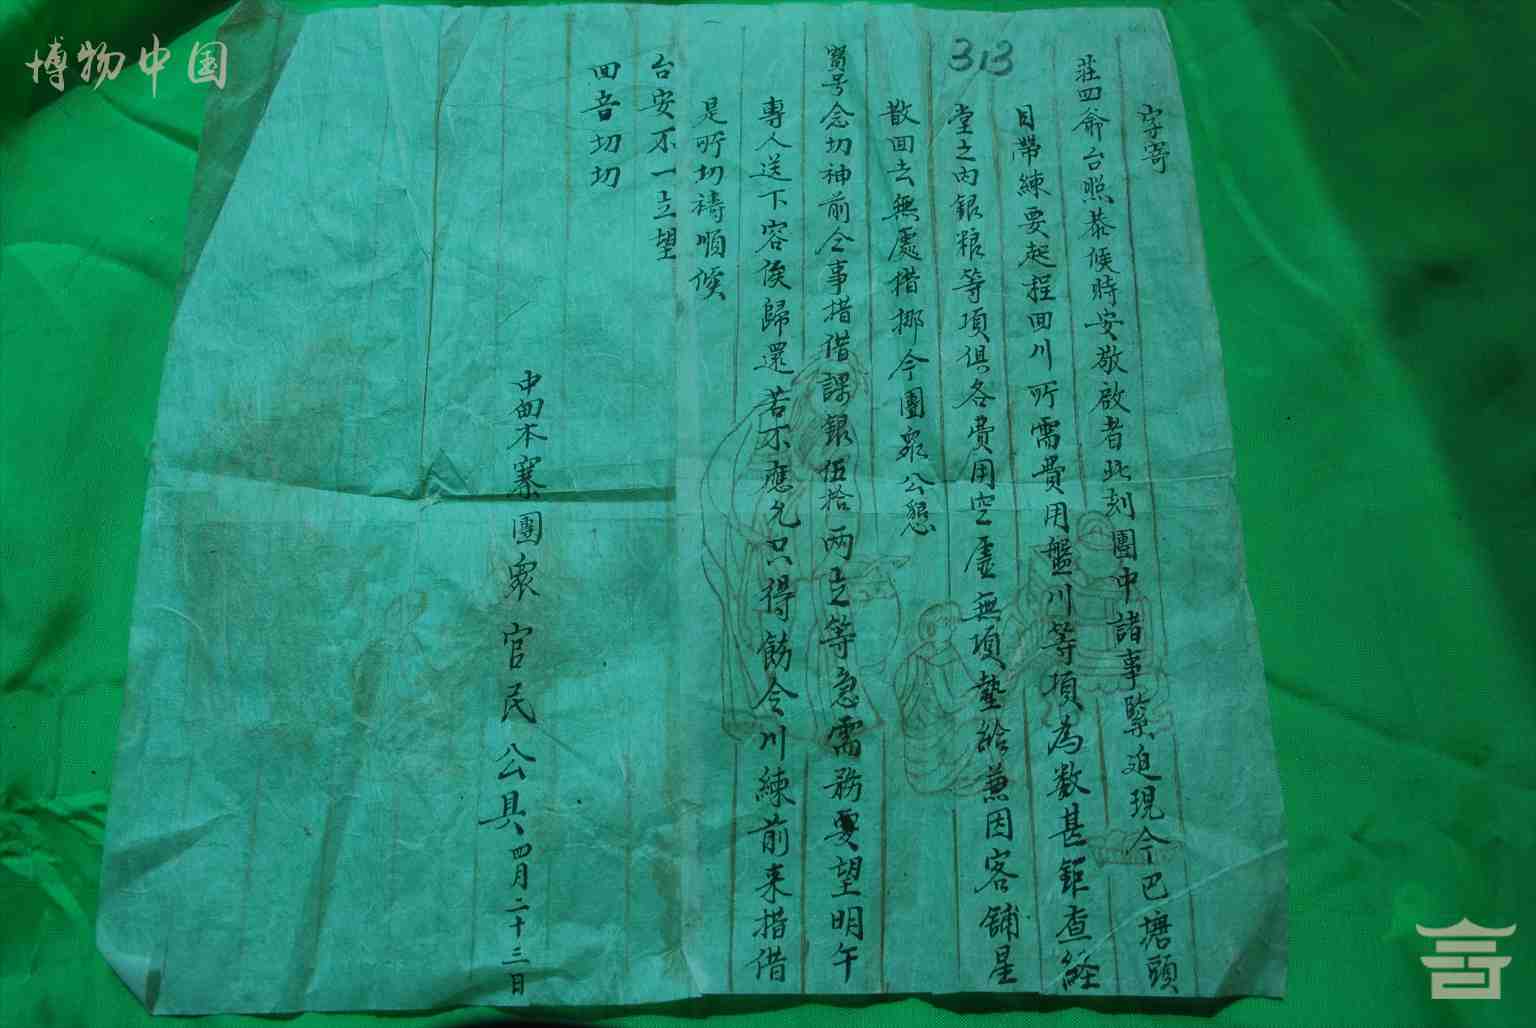 博物中国
313
字寄
莊四爺台照恭候時安敬啟者此刻團中諸事緊迫現今巴塘頭
目帶練要起程回川所需費用盤川等項為数甚鉅查経
堂之内銀粮等項俱各費用空虛無項墊給兼因客舗星
散回去無處措挪今團眾公懇
寳号念切神前仝事措借課銀伍拾両立等急需務要望明午
專人送下容俟歸還若不應允只得飭令川練前来措借
是所切禱順候
台安不一立望
回音切切
中 木寨團眾官民公具四月二十三日